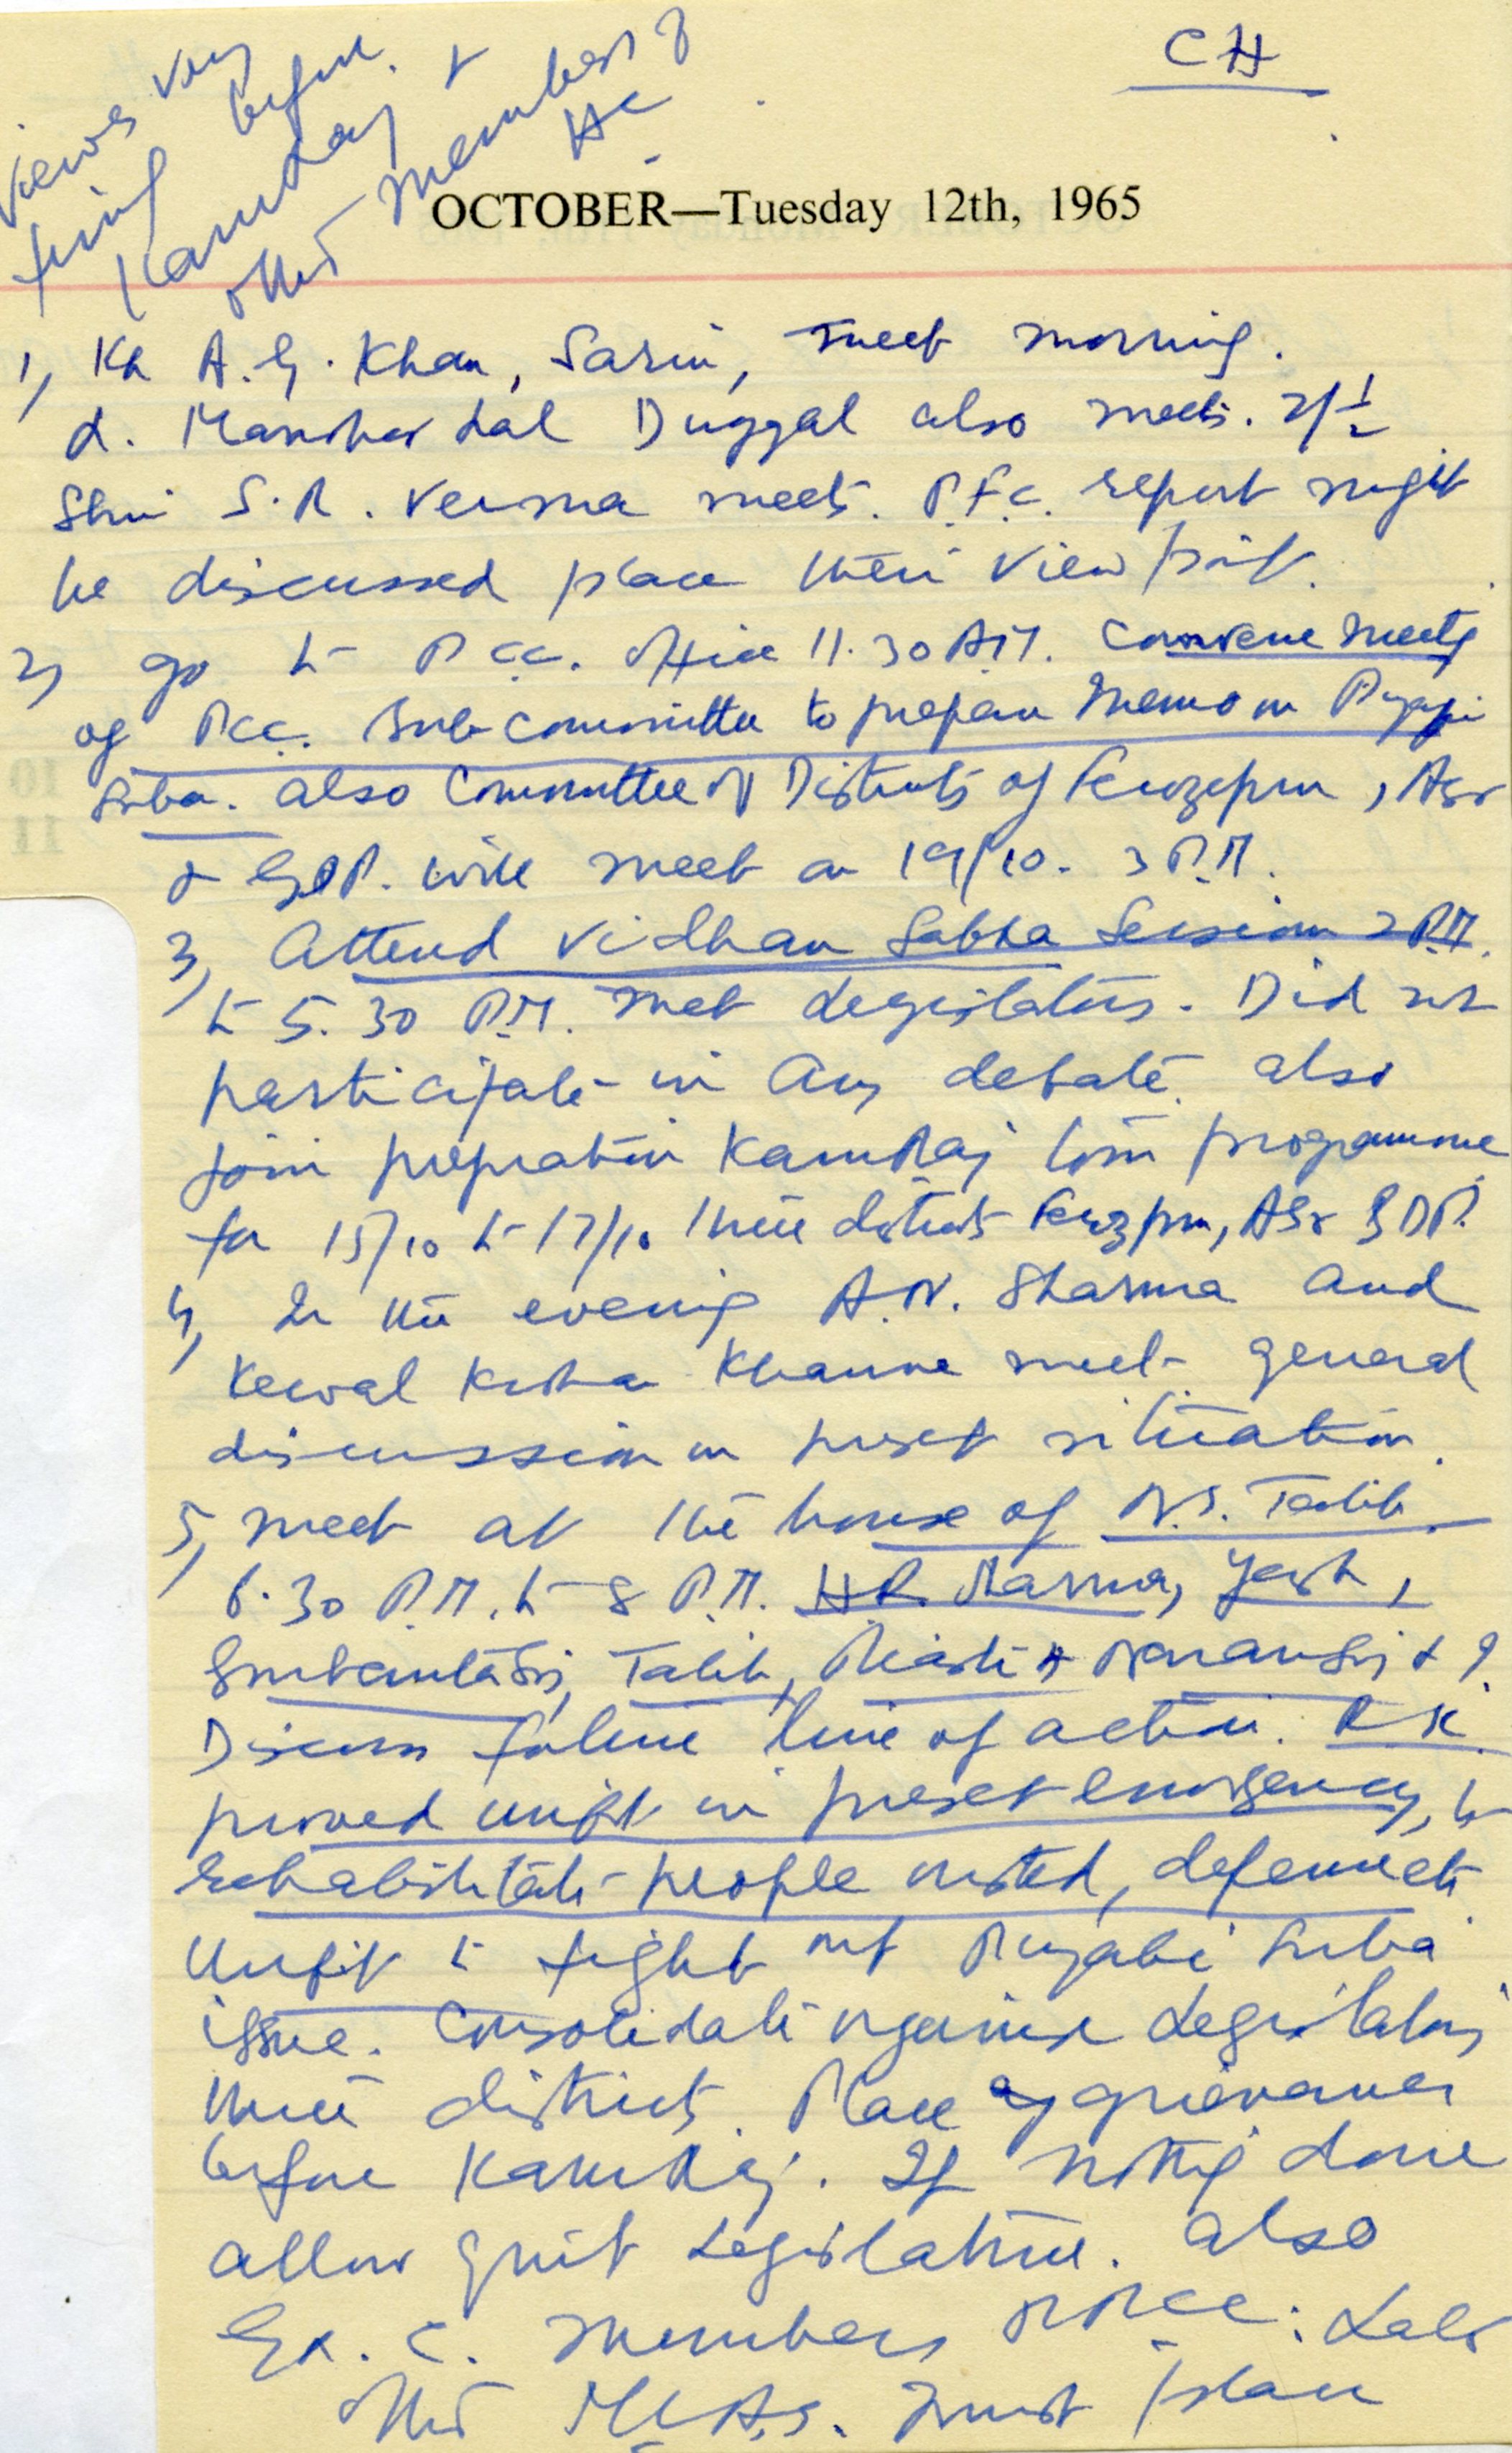 CH
OCTOBER—Tuesday 12th, 1965
1, Kh A.G. Khan, Sarin, meet morning.
d. Manohar Lal Duggal also meets.
Shri S.R. Verma meets. P.F.C. report might
be discussed place their view point.
2, go to P.C.C. office 11.30 AM. Convene meeting
of P.C.C. Sub-committee to prepare memo on Punjabi
Suba. also Committee of Districts of Ferozepur, Asr
& GDP. will meet on 19/10. 3 P.M.
3, Attend Vidhan Sabha Session 2 P.M.
to 5.30 P.M. met Legislators. Did not
participate in any debate. also
join preparation KamRaj tour programme
for 15/10 to 17/10 three districts Ferozpur, ASr GDP.
4, In the evening A.N. Sharma and
Kewal Krishan Khanna meet general
discussion on present situation.
5, meet at the house of N.S. Talib
6.30 P.M. to 8 P.M. H.R. Sharma, Yash,
Gurbanta Singh, Talib, & Narain Singh & ?
Discuss future line of action. R K.
proved unfit in present emergency, to
rehabilitate people uprooted,
Unfit to fight out Punjabi Suba
issue. Consolidate organise Legislators
three districts. Place grievances
before KamRaj. If nothing done
allow quit Legislature. also
Ex. C. members PPCC. Lals
other MLAs. must place
views very
before
KamRaj &
other members of
HC